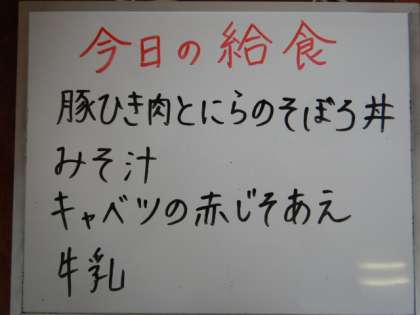 今日の給食
豚ひき肉とにらのそぼろ丼
みそ汁
キャベツの赤じそあえ
牛乳